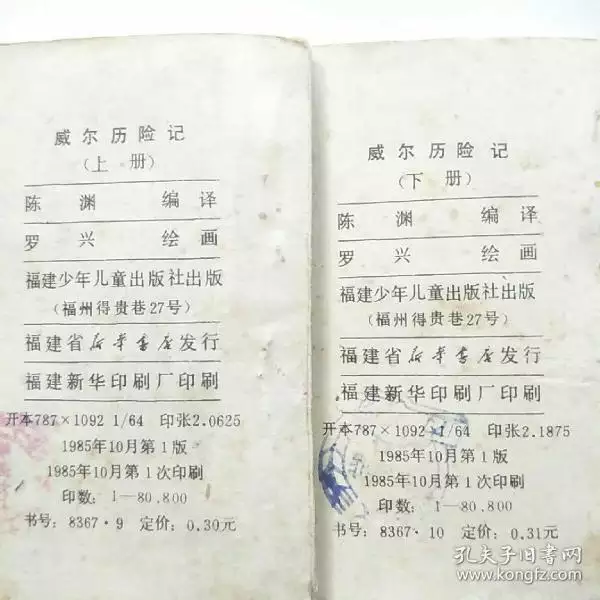 威尔历险记
(上册)
陈渊 编译
罗兴 绘画
福建少年儿童出版社出版
(福州得贵巷27号)
福建省新华书店发行
福建新华印刷厂印刷
开本787×1092 1/64 印张2.0625
1985年10月第1版
1985年10月第1次印刷
印数：1—80.800
书号：8367·9 定价：0.30元
威尔历险记
(下册)
陈渊 编译
罗兴 绘画
福建少年儿童出版社出版
(福州得贵巷27号)
福建省新华书店发行
福建新华印刷厂印刷
开本787×1092 1/64 印张2.1875
1985年10月第1版
1985年10月第1次印刷
印数：1—80.800
书号：8367·10 定价：0.31元
孔夫子旧书网
www.kongfz.com